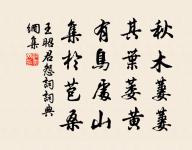 秋木萋萋
其葉萋黃
有鳥處山
集於苞桑
王昭君怨詞詞典
網集